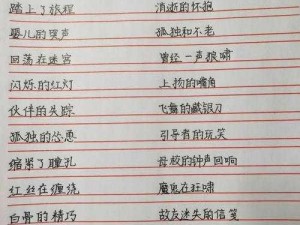 踏上了旅程 消逝的怀抱
婴儿的哭声 孤独和不老
回荡在迷宫 曾经一声狼啸
闪烁的红灯 上扬的嘴角
伙伴的失踪 飞舞的藏银刀
孤独的怂恿 引导者的玩笑
缩紧了瞳孔 母校的钟声回响
红丝在缠绕 魔鬼在狂啸
白骨的精巧 故友迷失前信笺